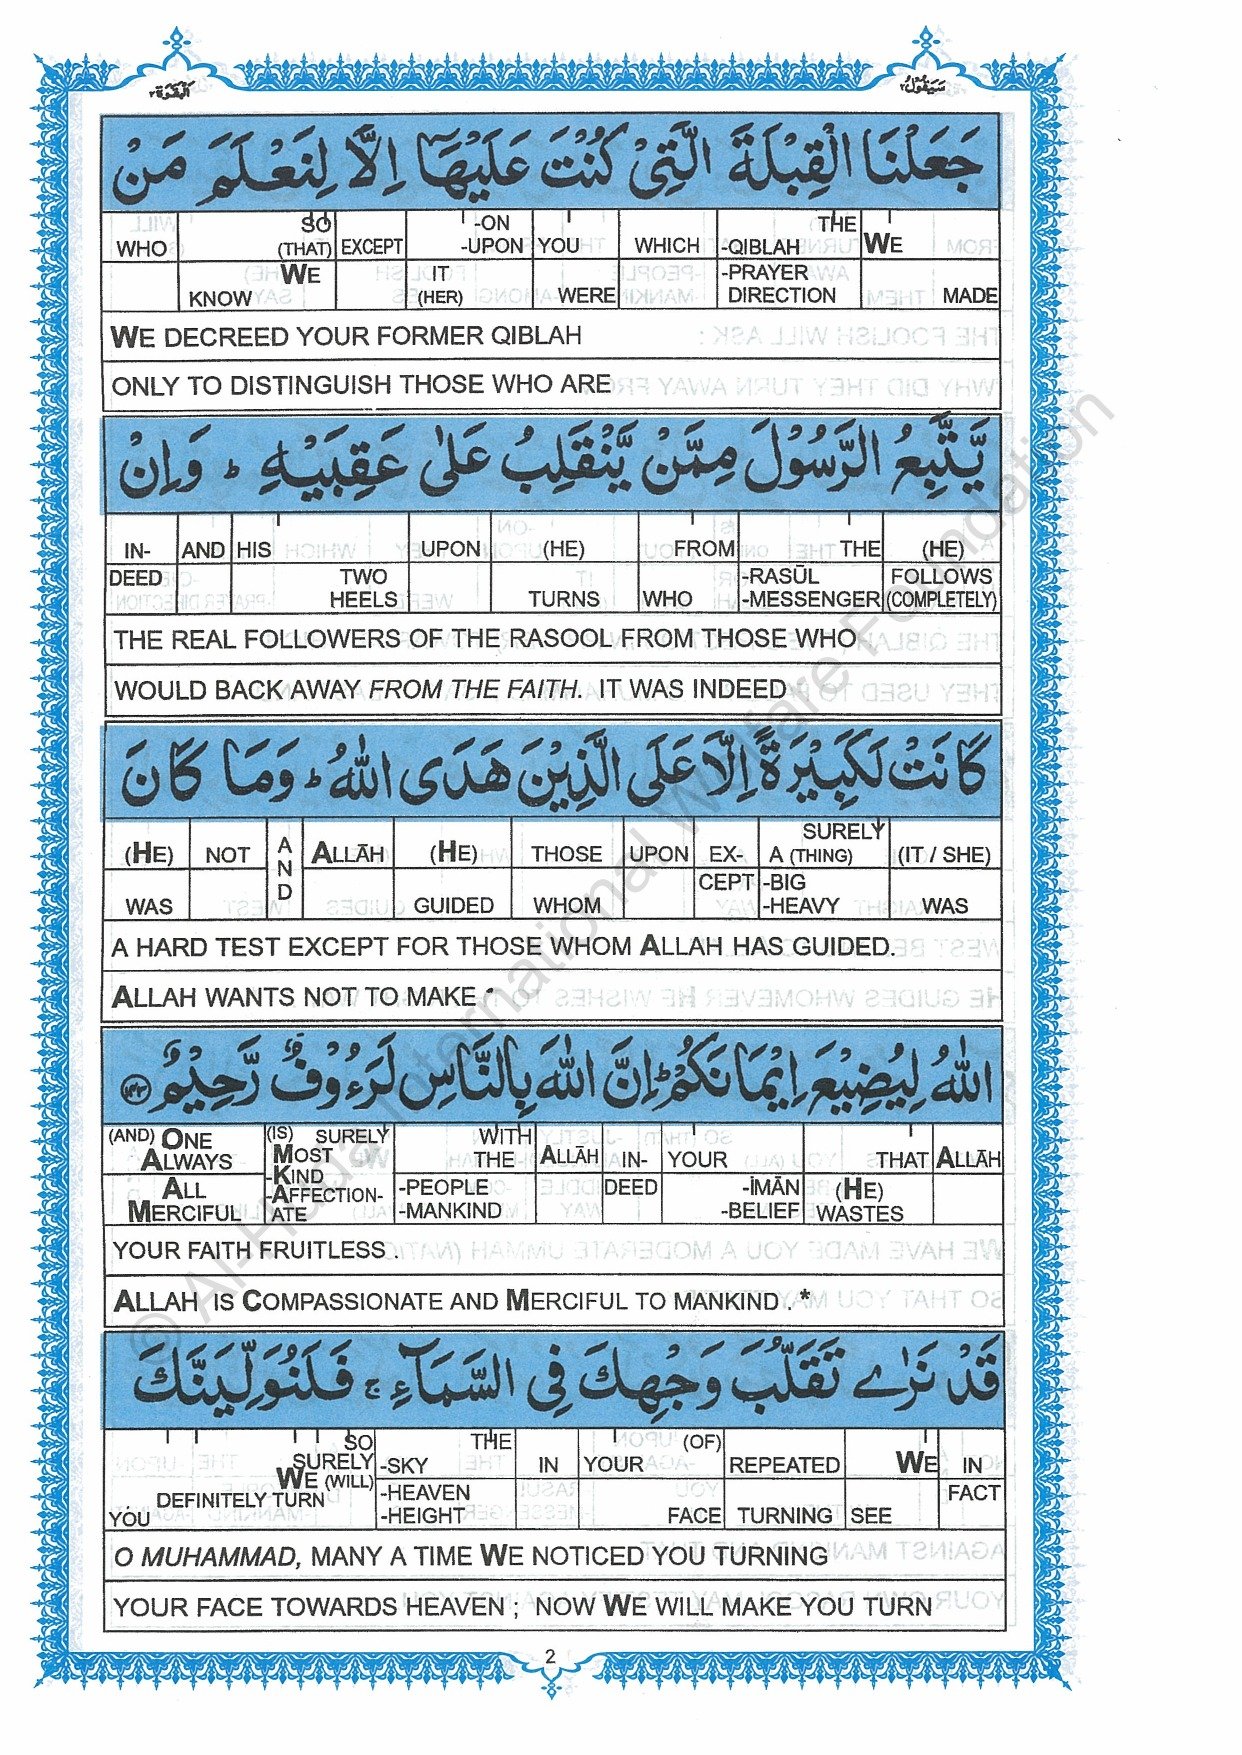 سَيَقُولُ ٢
اَلْبَقَرَة ٢
جَعَلْنَا الْقِبْلَةَ الَّتِيْ كُنْتَ عَلَيْهَآ اِلَّا لِنَعْلَمَ مَنْ
WHO SO (THAT) EXCEPT -ON -UPON YOU WHICH THE -QIBLAH WE
KNOW WE IT (HER) WERE -PRAYER DIRECTION MADE
WE DECREED YOUR FORMER QIBLAH
ONLY TO DISTINGUISH THOSE WHO ARE
يَّتَّبِعُ الرَّسُوْلَ مِمَّنْ يَّنْقَلِبُ عَلٰى عَقِبَيْهِ ؕ وَاِنْ
IN- AND HIS UPON (HE) FROM THE (HE)
DEED TWO HEELS TURNS WHO -RASŪL -MESSENGER FOLLOWS (COMPLETELY)
THE REAL FOLLOWERS OF THE RASOOL FROM THOSE WHO
WOULD BACK AWAY FROM THE FAITH. IT WAS INDEED
كَانَتْ لَكَبِيْرَةً اِلَّا عَلَى الَّذِيْنَ هَدَى اللّٰهُ ؕ وَمَا كَانَ
(HE) NOT AND ALLĀH (HE) THOSE UPON EX- SURELY A (THING) (IT / SHE)
WAS GUIDED WHOM CEPT -BIG -HEAVY WAS
A HARD TEST EXCEPT FOR THOSE WHOM ALLAH HAS GUIDED.
ALLAH WANTS NOT TO MAKE
اللّٰهُ لِيُضِيْعَ اِيْمَانَكُمْ ؕ اِنَّ اللّٰهَ بِالنَّاسِ لَرَءُوْفٌ رَّحِيْمٌ ﴿۱۴۳﴾
(AND) ONE ALWAYS (IS) SURELY MOST -KIND WITH THE ALLĀH IN- YOUR THAT ALLĀH
ALL MERCIFUL -AFFECTION- ATE -PEOPLE -MANKIND DEED -ĪMĀN -BELIEF (HE) WASTES
YOUR FAITH FRUITLESS .
ALLAH IS COMPASSIONATE AND MERCIFUL TO MANKIND . *
قَدْ نَرٰى تَقَلُّبَ وَجْهِكَ فِي السَّمَآءِ ۚ فَلَنُوَلِّيَنَّكَ
SO SURELY WE (WILL) THE -SKY IN YOUR (OF) REPEATED WE IN
YOU DEFINITELY TURN -HEAVEN -HEIGHT FACE TURNING SEE FACT
O MUHAMMAD, MANY A TIME WE NOTICED YOU TURNING
YOUR FACE TOWARDS HEAVEN ; NOW WE WILL MAKE YOU TURN
2
© Al-Huda International Welfare Foundation